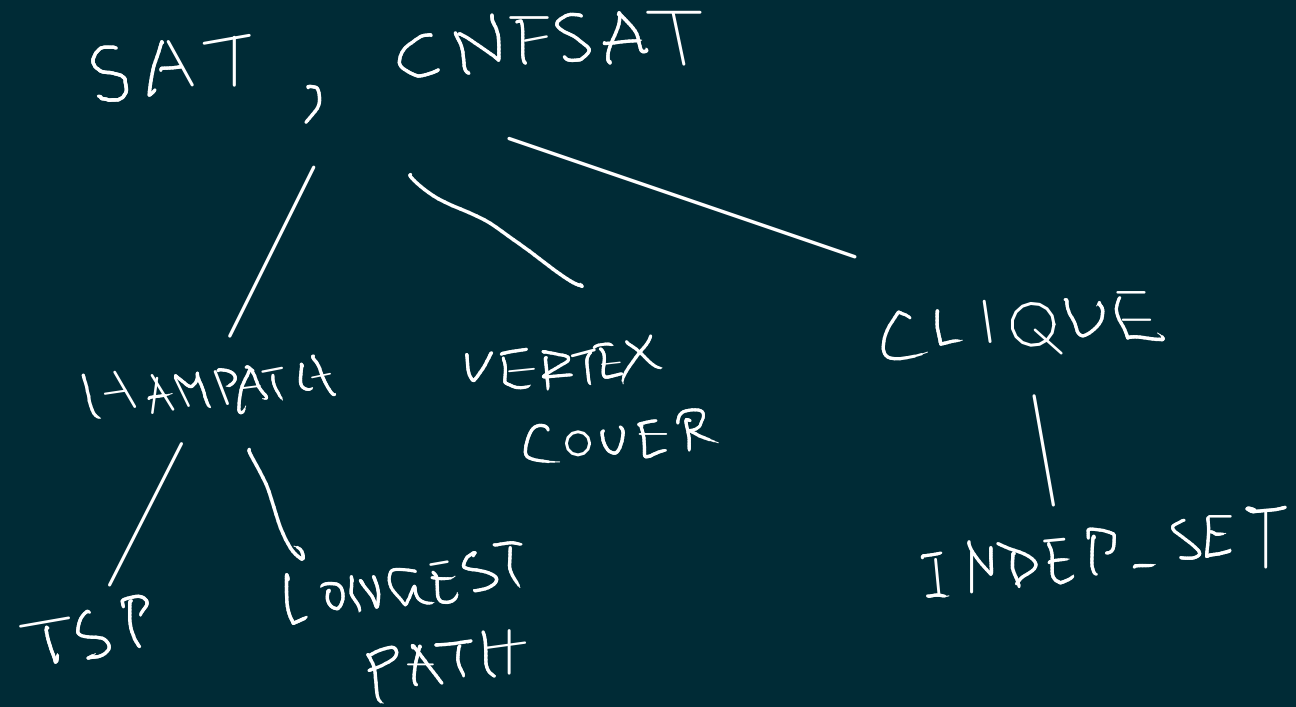 SAT, CNFSAT
HAMPATH
VERTEX
COVER
CLIQUE
TSP
LONGEST
PATH
INDEP_SET